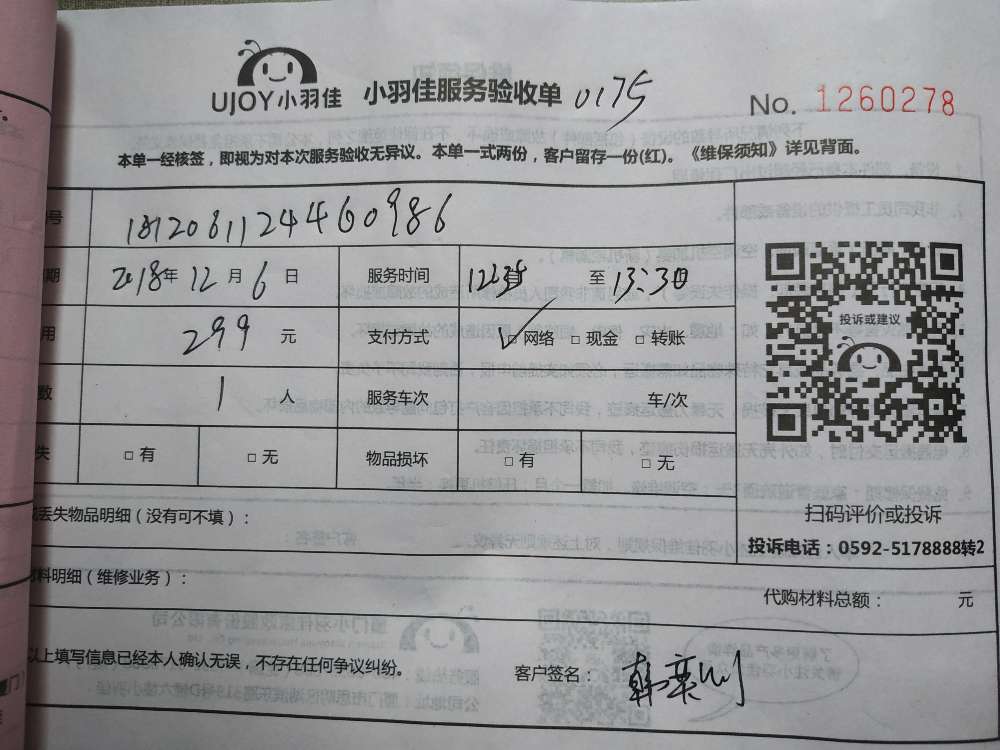 UJOY小羽佳 小羽佳服务验收单 0175 No. 1260278
本单一经核签，即视为对本次服务验收无异议。本单一式两份，客户留存一份(红)。《维保须知》详见背面。
号 181208112446０986
期 2018年 12 月 6 日 服务时间 至 13:30
用 299 元 支付方式 ☑网络 □ 现金 □ 转账
数 1 人 服务车次 车/次
失 □ 有 □ 无 物品损坏 □ 有 □ 无
投诉或建议
扫码评价或投诉
投诉电话：0592-5178888转2
丢失物品明细（没有可不填）：
料明细（维修业务）： 代购材料总额： 元
以上填写信息已经本人确认无误，不存在任何争议纠纷。 客户签名：